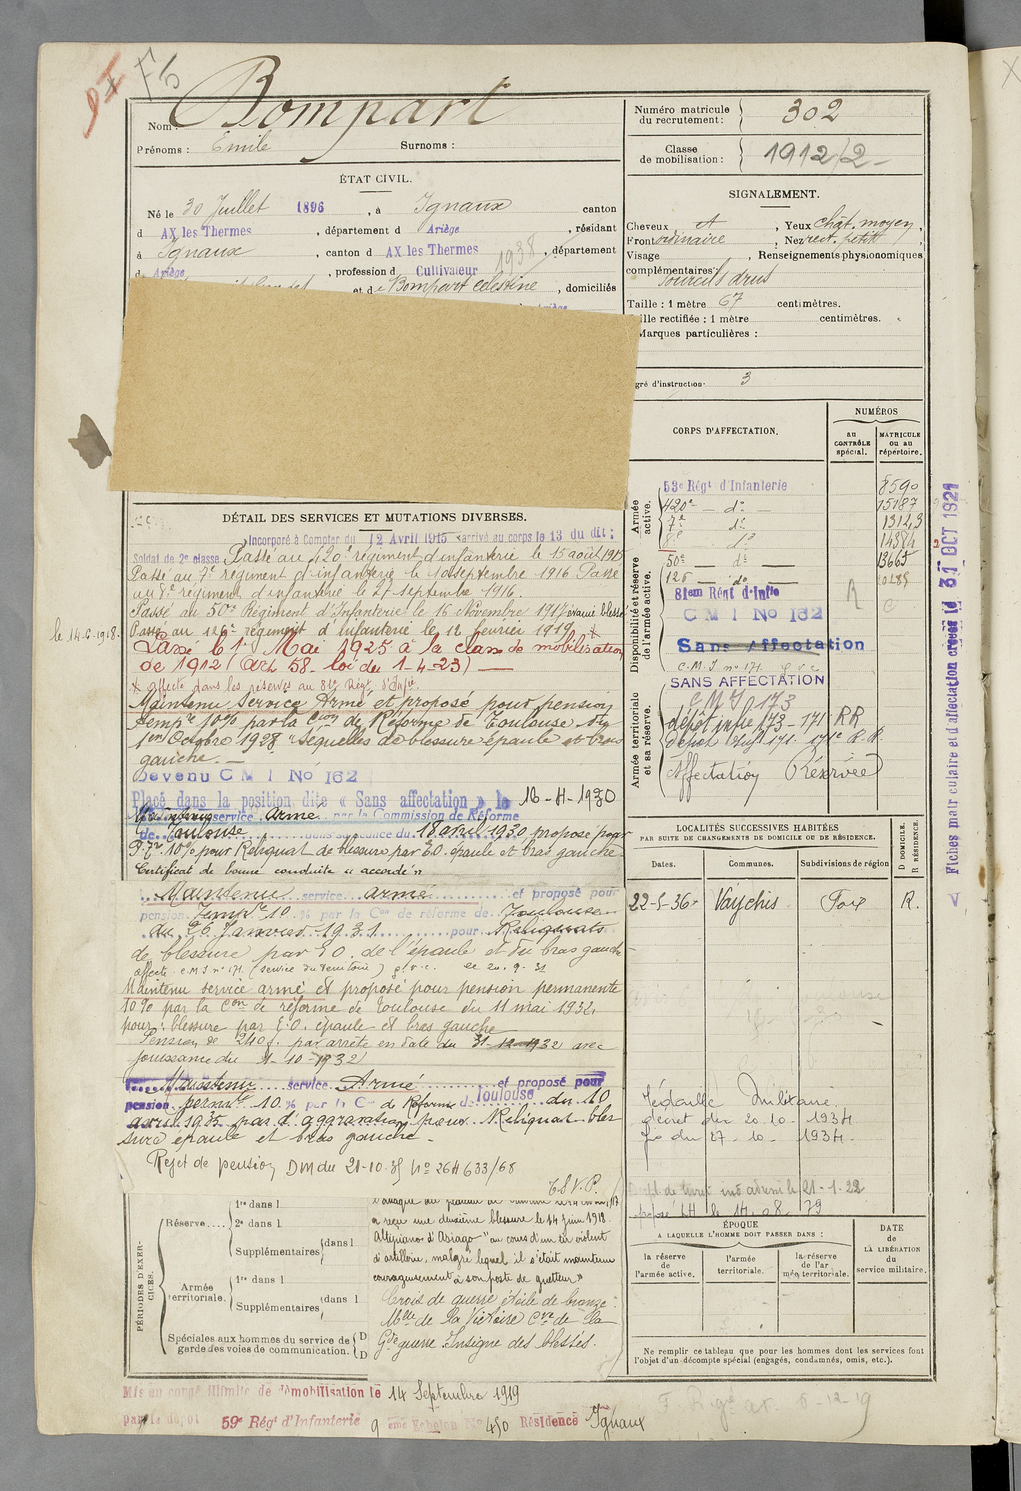 F5
Nom : Bompart
Prénoms : Emile Surnoms :
Numéro matricule du recrutement : 302
Classe de mobilisation : 1912/2
ÉTAT CIVIL.
Né le 30 Juillet 1896, à Ignaux canton
d AX les Thermes, département d Ariège, résidant
à Ignaux, canton d AX les Thermes, département
d Ariège, profession d Cultivateur
1938
et de Bompart Célestine, domiciliés
SIGNALEMENT.
Cheveux Yeux chât. moyen,
Front ordinaire, Nez rect. petit
Visage , Renseignements physionomiques
complémentaires : Sourcils drus
Taille : 1 mètre 67 centimètres.
ille rectifiée : 1 mètre centimètres.
Marques particulières :
gré d'instruction. 3
CORPS D'AFFECTATION.
NUMÉROS
au CONTRÔLE spécial.
MATRICULE ou au répertoire.
Armée active.
53e Régt d'Infanterie 8590
420e — do — 15187
7e do 13123
8e do 14384
Disponibilité et réserve de l'armée active.
50e — do — 13665
126 — do —
81em Régt d'Infie
C M I No 162
Sans Affectation
C.M.I no 171
SANS AFFECTATION
Armée territorial et sa réserve.
C.M.I 173
dépôt infie 173-171 RR
Affectation Réservée
DÉTAIL DES SERVICES ET MUTATIONS DIVERSES.
Incorporé à Compter du 12 Avril 1915 arrivé au corps le 13 du dit :
Soldat de 2e classe. Passé au 420e régiment d'infanterie le 15 août 1915
Passé au 7e régiment d'infanterie le 10 septembre 1916 Passé
au 8e régiment d'infanterie le 27 septembre 1916.
Passé au 50e Régiment d'Infanterie le 16 Novembre 1917 évacué blessé
le 14-6-1918.
Passé au 126e régiment d'infanterie le 12 février 1919
Passé le 1er Mai 1925 à la classe de mobilisation
de 1912 (art. 58. loi du 1-4-23) —
affecté dans les réserves au 81e Régt d'Infie.
Maintenu Service Armé et proposé pour pension
tempre 10% par la Cion de Réforme de Toulouse du
1er Octobre 1928 "Séquelles de blessure épaule et bras
gauche. —
Devenu C M I No 162
Placé dans la position dite « Sans affectation » le 16-4-1930
Maintenu service armé par la Commission de Réforme
de Toulouse dans sa séance du 18 avril 1930 proposé pour
P. Tre 10% pour Reliquat de blessure par E.O. épaule et bras gauche
Certificat de bonne conduite « accordé »
Maintenu service armé et proposé pour
pension Tempre 10 % par la Con de réforme de Toulouse
du 26 Janvier 1931 pour Reliquats
de blessure par E.O. de l'épaule et du bras gauche
affecté C.M.I no 171 (service du territoire) p.v.c. le 20-9-31
Maintenu service armé et proposé pour pension permanente
10% par la Con de réforme de Toulouse du 11 mai 1932
pour : blessure par E.O. épaule et bras gauche
Pension de 240 f. par arrêté en date du 31-12-1932 avec
jouissance du 1-10-1932
Maintenu service Armé et proposé pour
pension permte 10 % par la C de Réforme de Toulouse du 10
avril 1935 pas d'aggravation pour Reliquat bles-
sure épaule et bras gauche —
Rejet de pension DM du 21-10-35 No 264633/68
T.S.V.P.
LOCALITÉS SUCCESSIVES HABITÉES
PAR SUITE DE CHANGEMENTS DE DOMICILE OU DE RÉSIDENCE.
Dates. Communes. Subdivisions de région
D DOMICILE. R RÉSIDENCE.
22-5-36 Vaychis Foix R.
Médaille Militaire
décret du 20-10-1934
Jo du 27-10-1934.
PÉRIODES D'EXERCICES.
Réserve.... 1re dans l
2e dans l
Supplémentaires dans l
Armée territoriale. 1re dans l
Supplémentaires dans l
Spéciales aux hommes du service de garde des voies de communication. D D
a reçu une deuxième blessure le 14 juin 1918.
Altépiano d'Asiago "au cours d'un tir violent
d'artillerie, malgré lequel il s'était maintenu
courageusement à son poste de guetteur»
Croix de guerre étoile de bronze.
Mlle de la Victoire Cve de la
Gde guerre. Insigne des blessés.
ÉPOQUE
A LAQUELLE L'HOMME DOIT PASSER DANS :
la réserve de l'armée active.
l'armée territoriale.
la réserve de l'armée territoriale.
DATE de LA LIBÉRATION du service militaire.
Ne remplir ce tableau que pour les hommes dont les services font
l'objet d'un décompte spécial (engagés, condamnés, omis, etc.).
Mis en congé illimité de démobilisation le 14 Septembre 1919
par le dépôt 59e Régt d'Infanterie 9 eme Echelon No 450 Résidence Ignaux